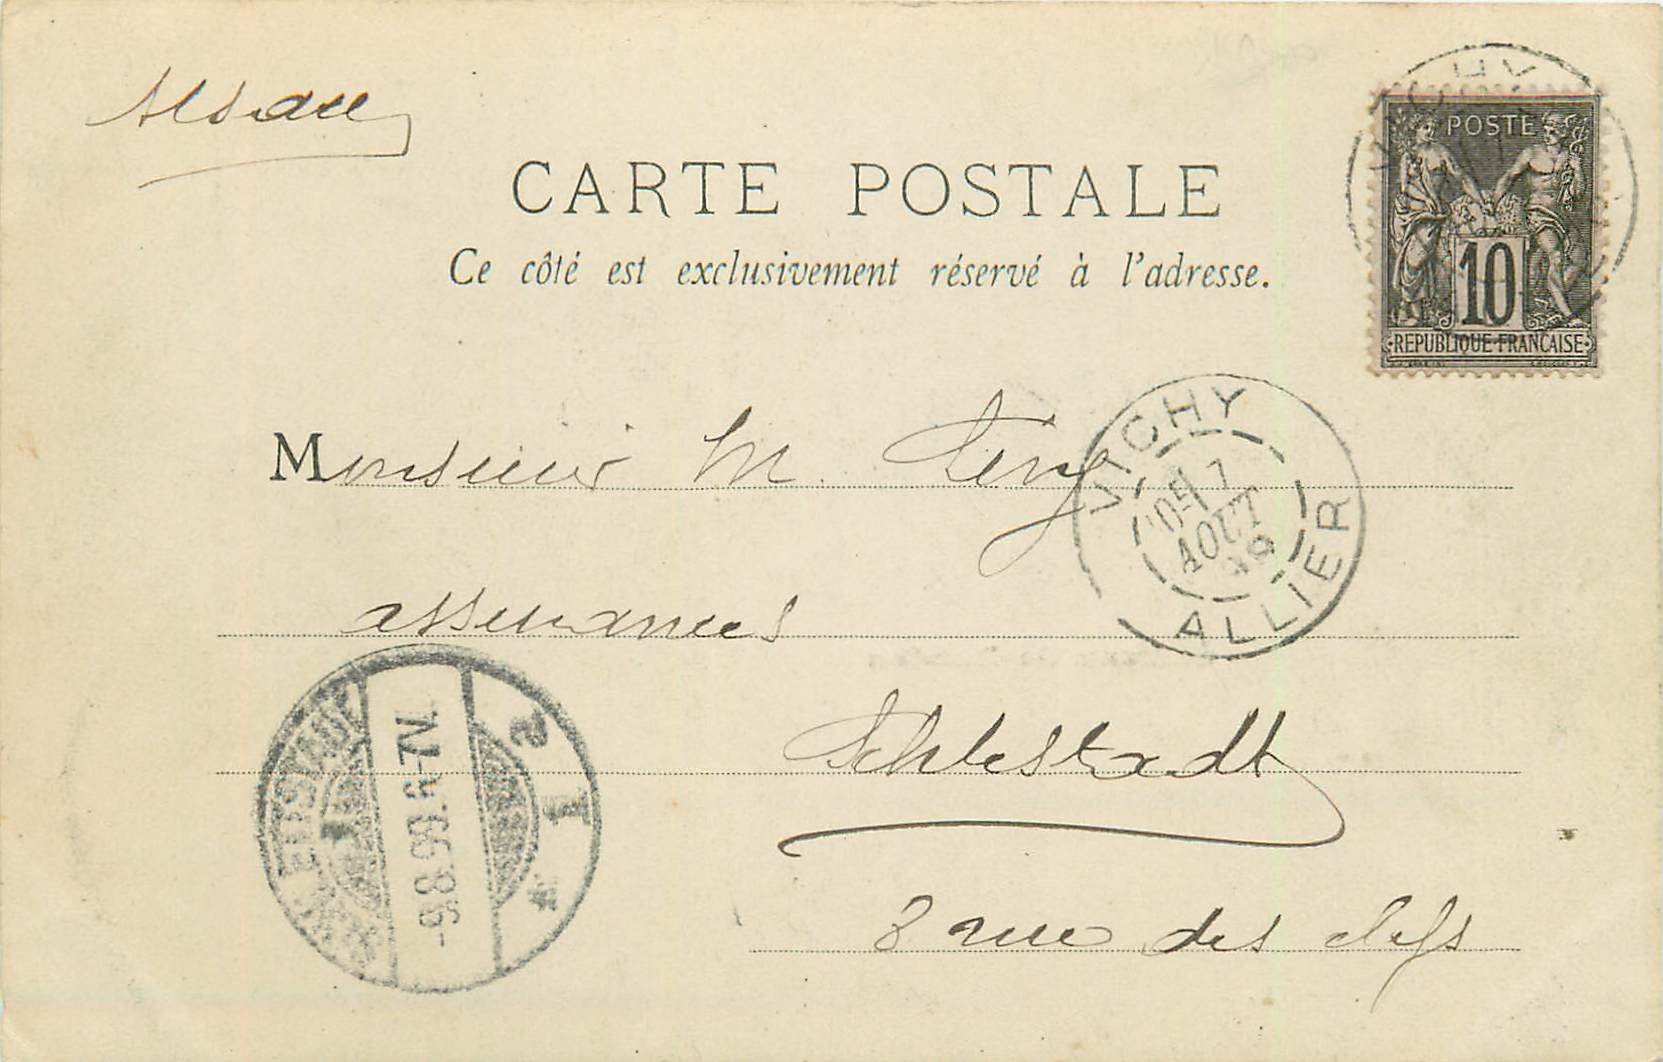 Alsace
VICHY
POSTE
10
REPUBLIQUE FRANCAISE
CARTE POSTALE
Ce côté est exclusivement réservé à l'adresse.
Monsieur M. Levy
VICHY
7
AOUT
99
ALLIER
assurances
Schlestadt
-9.8.99.6-7N.
1
a
8 rue des clefs